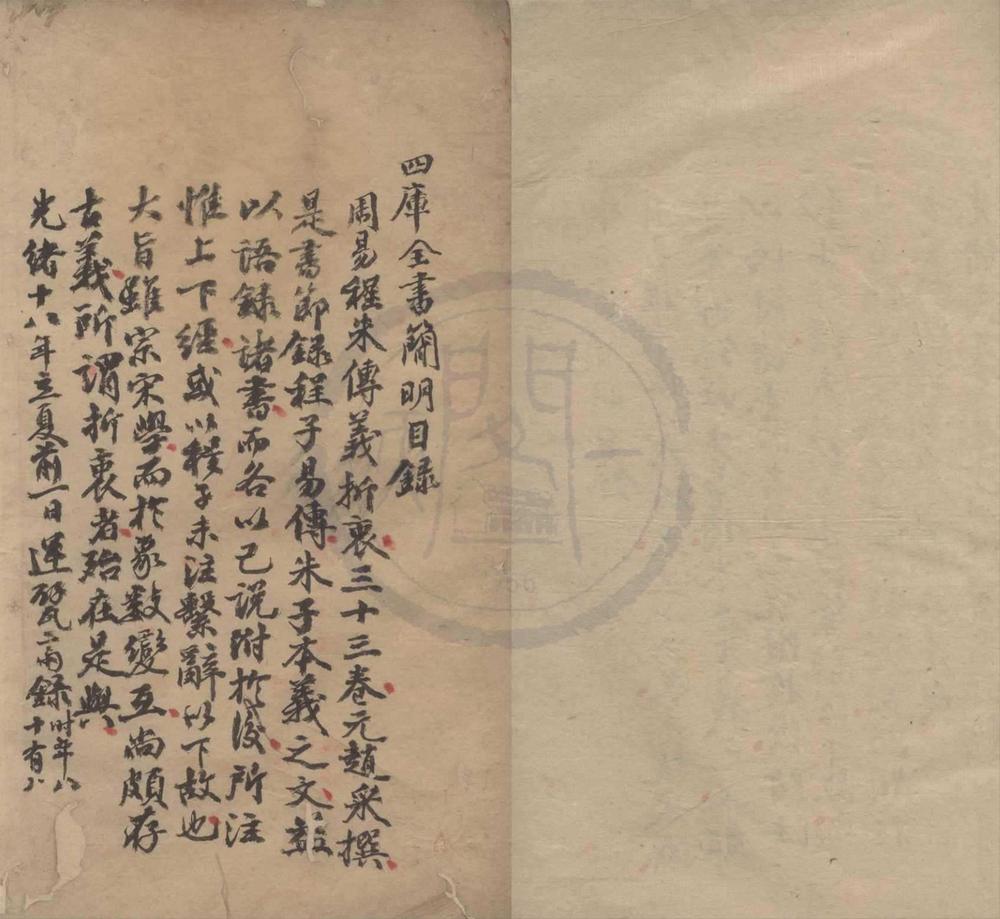 四庫全書簡明目錄
周易程朱傳義折衷三十三卷元趙采撰
是書節錄程子易傳朱子本義之文益
以語錄諸書而各以己說附於後所注
惟上下經或以程子未注繫辭以下故也
大旨雖宗宋學而於象數變互尚頗存
古義所謂折衷者殆在是與
光緒十八年立夏前一日運甓齋錄時年八十有八